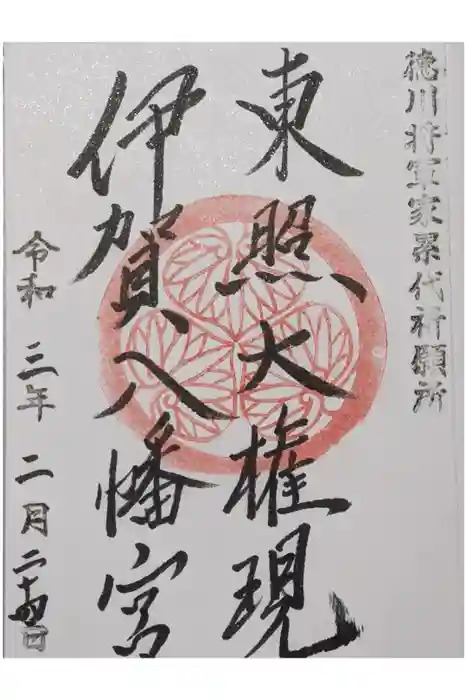 徳川将軍家累代祈願所
東照大権現
伊賀八幡宮
令和三年二月二十四日